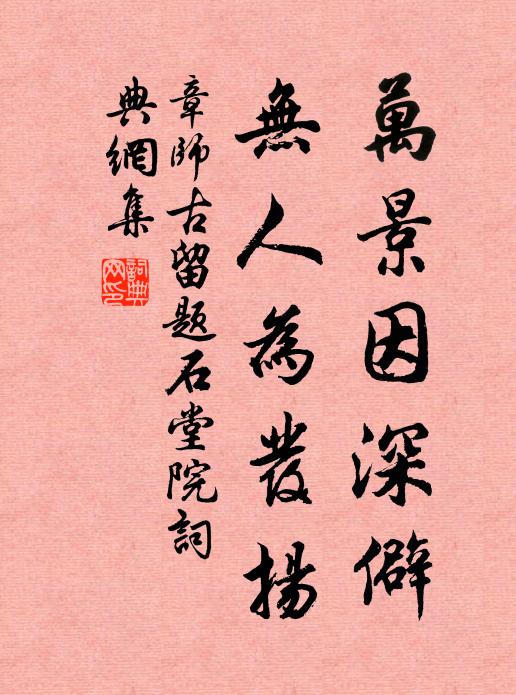 萬景因深僻
無人為發揚
章師古留題石堂院詞
典網集
詞典網印